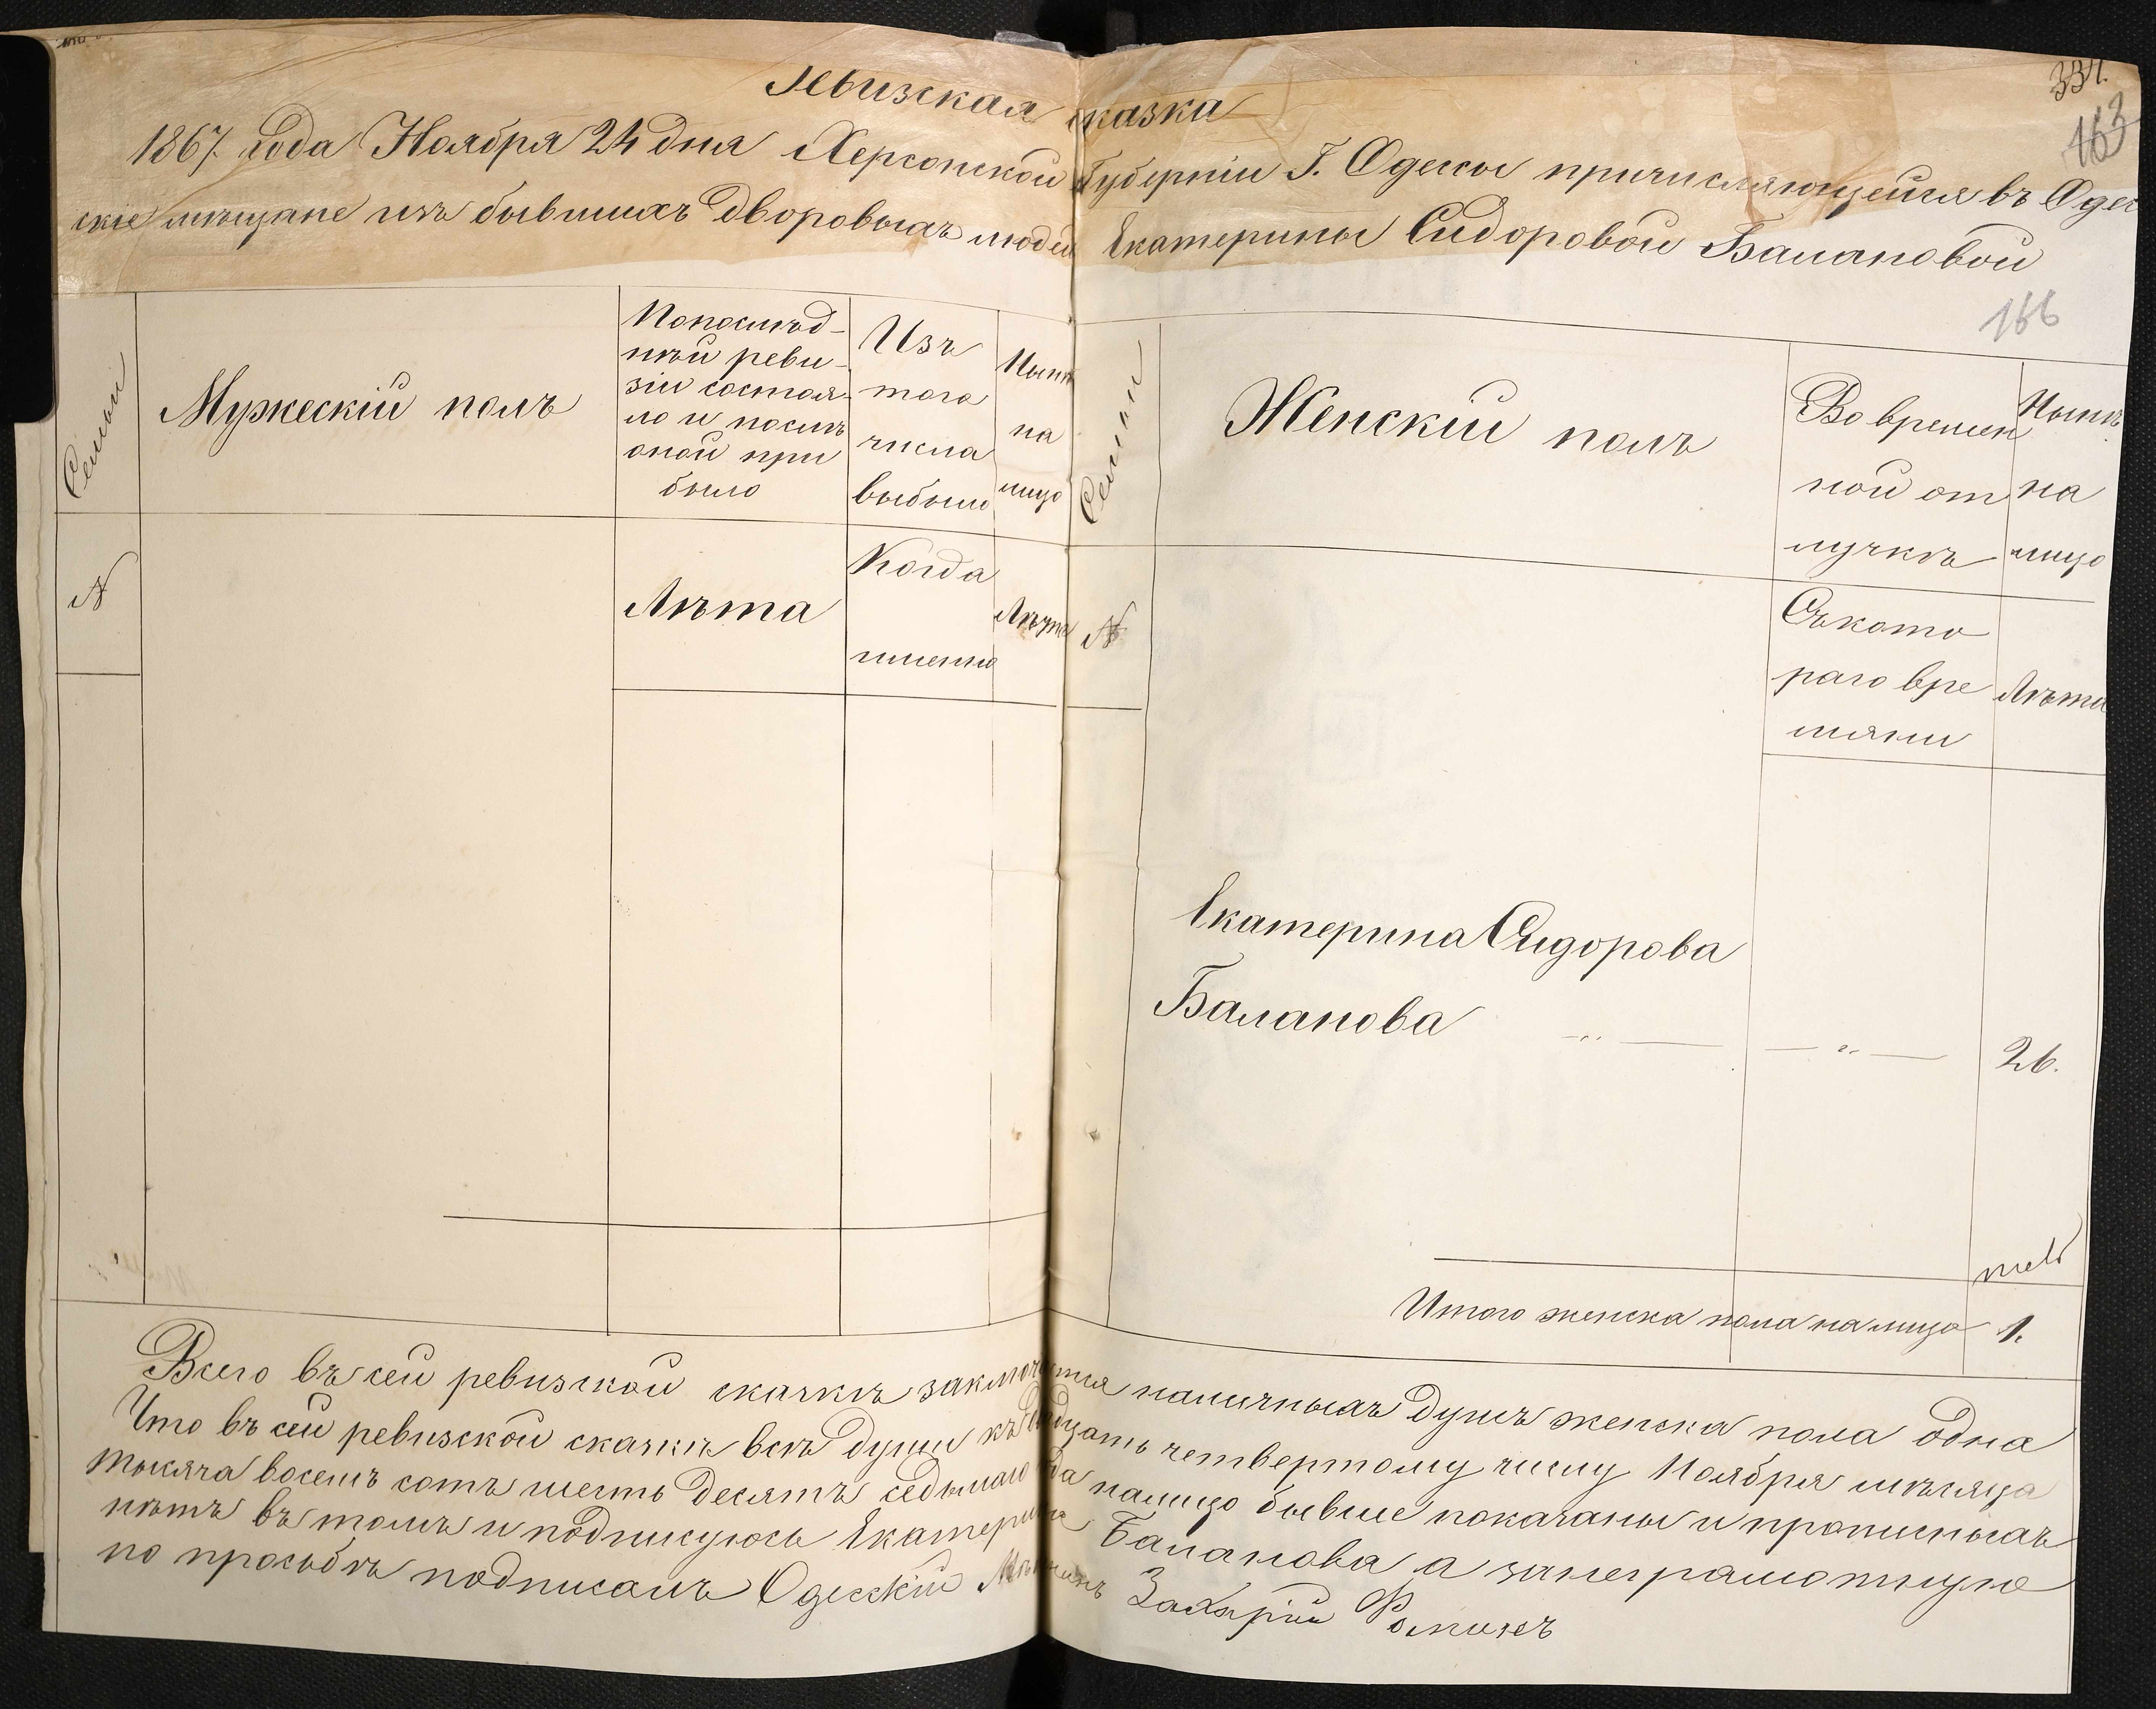 Ревизская сказка
331.
163
1867. года Ноября 24 дня Херсонской Губерніи Г. Одессы причисляющейся въ Одес
скіе мѣщане изъ бывшихъ дворовыхъ людей Екатерины Сидоровой Балановой
166
Семьи
Мужескій полъ
Попослѣд-
нѣй реви-
зіи состоя-
ло и послѣ
оной при
было
Изъ
того
числа
выбыло
Нынѣ
на
лицо
№
Лѣта
Когда
именно
Лѣта
Семьи
Женскій полъ
Во времен
ной от
лучкѣ
Нынѣ
на
лицо
№
Съкото
раго вре
мяни
Лѣта
Екатерина Сидорова
Баланова — „ — — „ — 26.
Итого женска пола налицо 1.
Всего въ сей ревизской скаскѣ заключается наличныхъ душъ женска пола одна
Что въ сей ревизской скаскѣ всѣ души къ двадцать четвертому числу Ноября мѣсяца
тысяча восемъ сотъ шесть десятъ седьмаго года налицо бывшіе показаны и прописныхъ
нѣтъ въ томъ и подписуюсь Екатерина Баланова а занеграмотную
по просьбѣ подписалъ Одесскій Мѣщанинъ Захарій